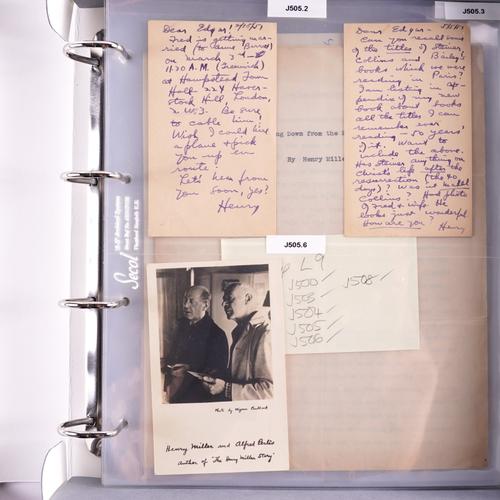 J505.2
J505.3
Dear Edgar!
Fred is getting mar-
ried (to Anne Barret)
on March
11.30 A.M. (Greenwich)
at Hampstead Town
Hall Haver-
stock Hill, London,
N.W.3. Be sure
to cable him!
Wish I could hire
a plane & pick
you up en
route!
Let's hear from
you soon, yes?
Henry
Dear Edgar—
Can you recall some
of the titles of Steiner,
Collins and Bailey's
books which we were
reading in Paris?
I am listing in ap-
pendix of my new
book about books
all the titles I can
remember ever
reading—50 years,
of it. Want to
include the above.
Has Steiner anything on
Christ's life after the
resurrection (the 40
days)? Was it Mabel
Collins? Had photo
of Fred & wife. He
looks just wonderful
How are you?
Henry
ng Down from the
By Henry Mille
J505.6
L9
J500/
J508/
J503/
J504/
J505/
J506/
Secol
Photo by Wynn Bullock
Henry Miller and Alfred Perlès
author of "The Henry Miller Story"